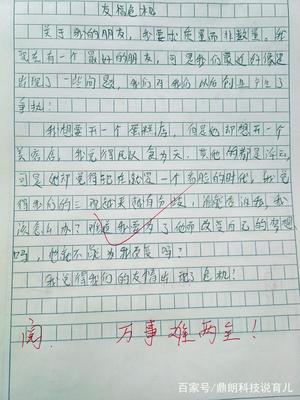 友情危机
关于我的朋友，我要求质量而非数量。我
现在有一个最好的朋友，可是我们最近好像是
出现了一些问题，我们在我们以后创业产生了
争执！
我想要开一个蛋糕店，但是她却想开一个
美容店，我觉得民以食为天，其他的都是浮云，
可是她却觉得现在就是一个看脸的时代，我觉
得我们的三观越来越有分歧，你要告诉我，我
该怎么办？难道我要为了她而改变自己的梦想
吗，她就不能为我改变吗？
我觉得我们的友情出现了危机！
阅 万事难两全！
百家号/鼎朗科技说育儿